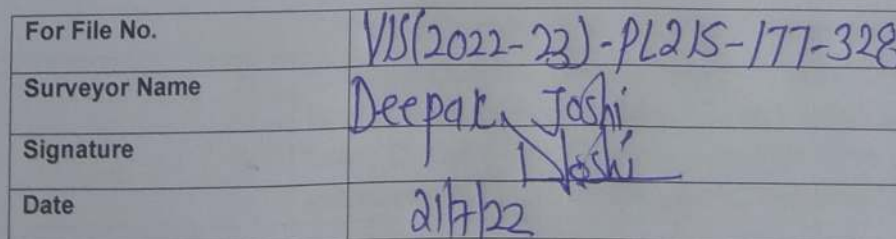 For File No. VIS(2022-23)-PL215-177-328
Surveyor Name Deepak Joshi
Signature DJoshi
Date 21/7/22